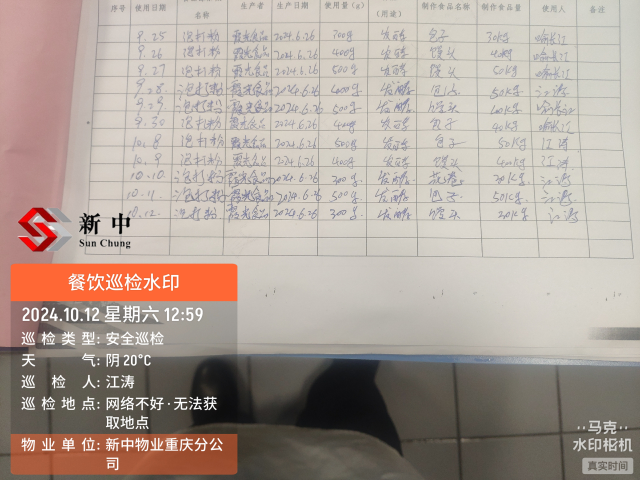 序号 使用日期 名称 生产者 生产日期 使用量(g) (用途) 制作食品名称 制作食品量 使用人 备注
9.25 泡打粉 霞光食品 2024.6.26 700g 发酵 包子 30kg 喻长江
9.26 泡打粉 霞光食品 2024.6.26 400g 发酵 馒头 喻长江
9.27 泡打粉 霞光食品 2024.6.26 500g 发酵 馒头 50kg 喻长江
9.28 泡打粉 霞光食品 2024.6.26 400g 发酵 包子 50kg 江涛
9.29 泡打粉 霞光食品 2024.6.26 500g 发酵 馒头 喻长江
9.30 泡打粉 霞光食品 2024.6.26 400g 发酵 包子 40kg 喻长江
10.8 泡打粉 霞光食品 2024.6.26 500g 发酵 包子 50kg 江涛
10.9 泡打粉 霞光食品 2024.6.26 400g 发酵 馒头 江涛
10.10 泡打粉 霞光食品 2024.6.26 200g 发酵 花卷 20kg 江涛
10.11 泡打粉 霞光食品 2024.6.26 500g 发酵 包子 50kg 江涛
10.12 泡打粉 霞光食品 2024.6.26 300g 发酵 馒头 20kg 江涛
新中
Sun Chung
餐饮巡检水印
2024.10.12 星期六 12:59
巡检类型: 安全巡检
天气: 阴 20°C
巡检人: 江涛
巡检地点: 网络不好·无法获
取地点
物业单位: 新中物业重庆分公
司
马克
水印相机
真实时间